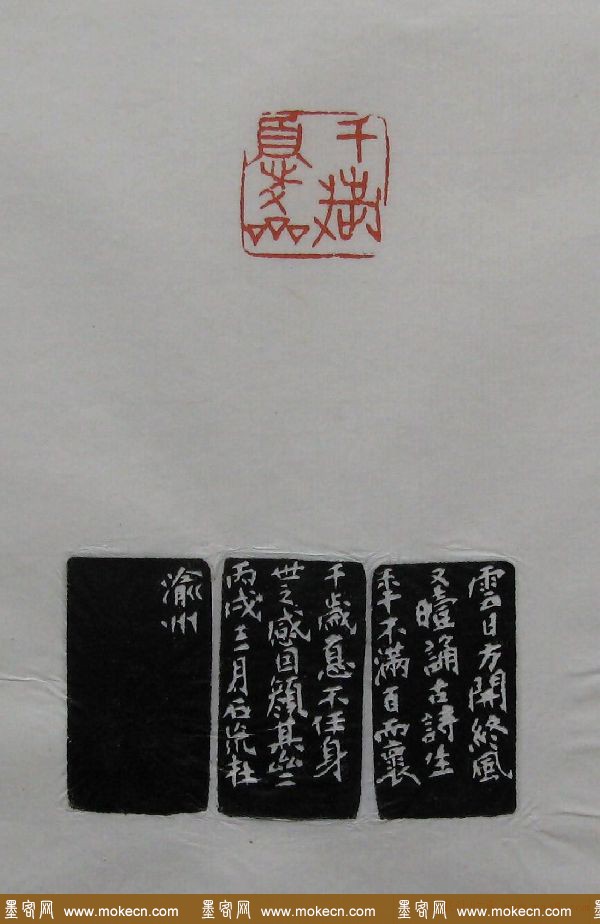 千歲
憂
雲日方開終風
又曀誦古詩生
年不滿百而懷
千歲憂不任身
世之感因顏其
丙戌三月石流
渝州
墨客网 www.mokecn.com 墨客网 www.mokecn.com 墨客网 www.mokecn.com 墨客网 www.mokecn.com